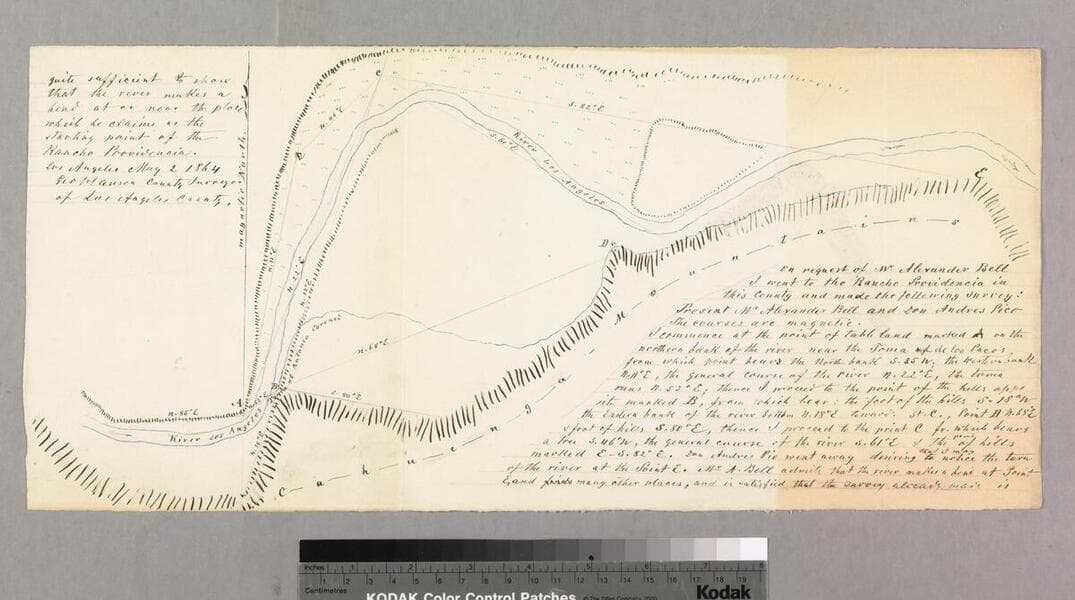 on request of Mr Alexander Bell
I went to the Rancho Providencia in
this County and made the following Survey:
Present Mr Alexander Bell and Don Andres Pico
The courses are magnetic.
I commence at the point of Table land marked A on the
northern bank of the river near the Toma de los Pacos,
from which point bears the North bank S. 85 W, the Western bank
N. 11° E, the general course of the river N. 22° E, the toma
runs N. 52° E; thence I proceed to the point of the hills oppo
site marked B, from which bear: the foot of the hills S- 18° W
the Eastern bank of the river bottom N. 18° E towards St. C., Point D N. 68° E
& foot of hills S. 80° E, thence I proceed to the point C fr. which bears
a tree S. 46° W, the general course of the river S. 61° E & the of hills
marked E - S. 82° E. Don Andres Pico went away desiring to notice the turn
of the river at the Point E. Mr A. Bell admits that the river makes a bend at Point
E and many other places, and is satisfied that the survey already made is
quite sufficient to show
that the river makes a
bend at or near the place
which he claims as the
starting point of the
Rancho Providencia.
Los Angeles May 2 1864
Geo Hansen County Surveyor
of Los Angeles County.
magnetic North
C
N. 46° E
S. 82° E
River Los Angeles
S. 61° E
E
D
N. 11° E
N. 22° E
N. 18° E
N. 68° E
A
B
N. 85° E
S. 80° E
River Los Angeles
Cahuenga Mountains
inches 1 2 3 4 5 6 7 8
Centimetres 1 2 3 4 5 6 7 8 9 10 11 12 13 14 15 16 17 18 19
KODAK Color Control Patches
Kodak